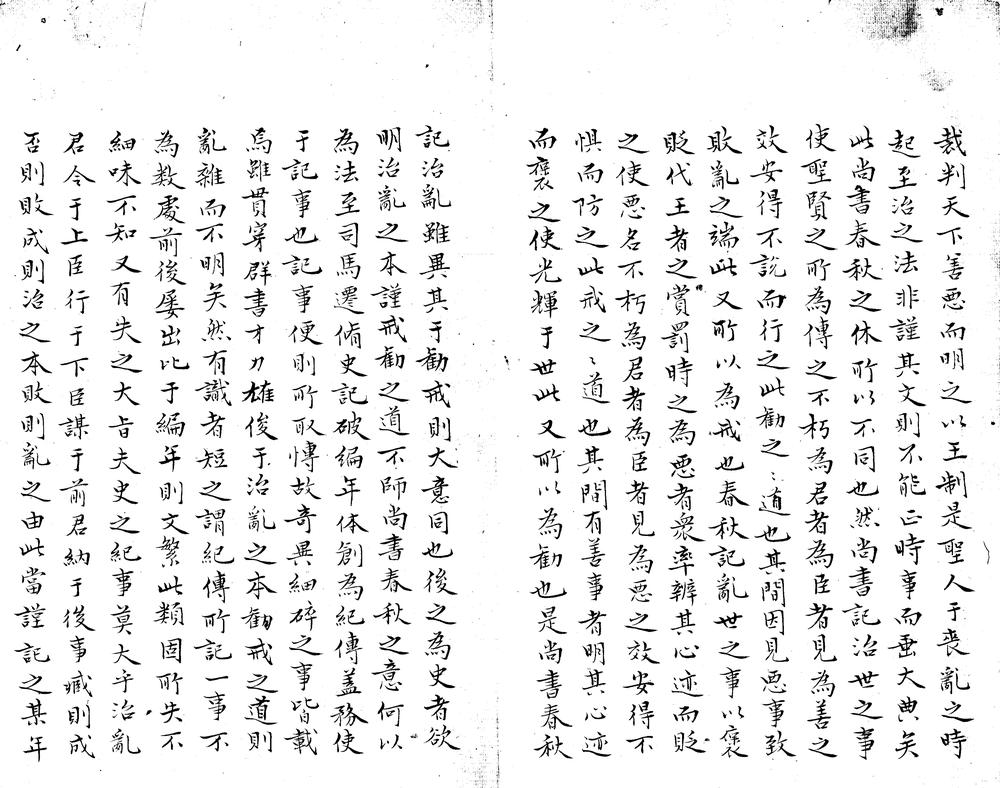 裁判天下善惡而明之以王制是聖人于喪亂之時
起至治之法非謹其文則不能正時事而垂大典矣
此尚書春秋之体所以不同也然尚書記治世之事
使聖賢之所為傳之不朽為君者為臣者見為善之
效安得不說而行之此勸之〻道也其間因見惡事致
敗亂之端此又所以為戒也春秋記亂世之事以褒
貶代王者之賞罰時之為惡者衆率辨其心迹而貶
之使惡名不朽為君者為臣者見為惡之效安得不
惧而防之此戒之〻道也其間有善事者明其心迹
而褒之使光輝于世此又所以為勸也是尚書春秋
記治亂雖異其于勸戒則大意同也後之為史者欲
明治亂之本謹戒勸之道不師尚書春秋之意何以
為法至司馬遷脩史記破編年体創為紀傳盖務使
于記事也記事便則所取慱故奇異細碎之事皆載
焉雖貫穿群書才力雄俊于治亂之本勸戒之道則
亂雜而不明矣然有識者短之謂紀傳所記一事不
為数處前後屡出比于編年則文繁此類固所失不
細味不知又有失之大旨夫史之紀事莫大乎治亂
君令于上臣行于下臣謀于前君納于後事臧則成
否則敗成則治之本敗則亂之由此當謹記之某年